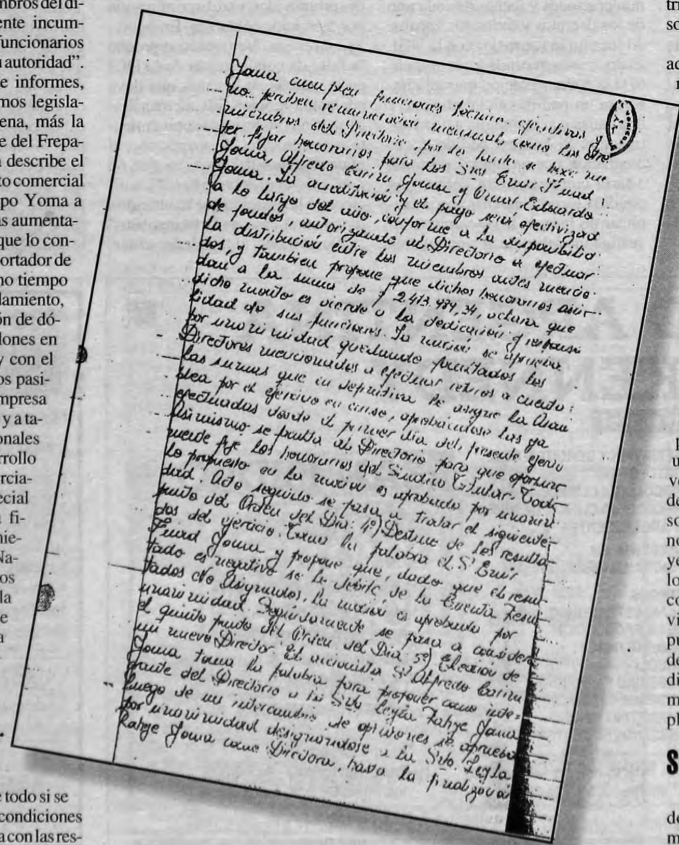 mbros del di-
ente incum-
funcionarios
u autoridad”.
e informes,
mos legisla-
ena, más la
e del Frepa-
describe el
to comercial
po Yoma a
as aumenta-
que lo con-
portador de
no tiempo
lamiento,
ón de dó-
lones en
y con el
os pasi-
mpresa
y a ta-
onales
rrollo
rcia-
ecial
fi-
nie-
Na-
os
la
e
a
e todo si se
condiciones
a con las res-
Yoma cumplen funciones técnico ejecutivas y
no perciben remuneración mensual como los otros
miembros del Directorio, por lo tanto se hace
ter fijar honorarios para los Sres Emir Fuad
Yoma, Alfredo Carim Yoma y Omar Eduardo
Yoma. La acreditación y el pago será efectivizad
a lo largo del año, conforme a la disponibilid
de fondos, autorizando al Directorio a efectuar
la distribución entre los miembros antes mencio-
dos, y tambien propone que dichos honorarios asci-
dan a la suma de $ 2.413.484,34, aclara que
dicho monto es acorde a la dedicación y responsa
bilidad de sus funciones. La moción se aprueba
por unanimidad quedando facultados los
Directores mencionados a efectuar retiros a cuenta
las sumas que en definitiva le asigne la Asam
blea por el ejercicio en curso, aprobándose las ya
efectuadas desde el primer día del presente ejerci
Asimismo se faculta al Directorio para que oportuna
mente fije los honorarios del Síndico Titular. Todo
lo propuesto en la moción es aprobado por unanimi
dad. Acto seguido se pasa a tratar el siguiente
punto del Orden del Día: 4º) Destino de los resulta-
dos del ejercicio. Toma la palabra el Sr Emir
Fuad Yoma y propone que, dado que el resul
tado es negativo se le debite de la Cuenta Resul
tados No Asignados. La moción es aprobada por
unanimidad. Seguidamente se pasa a consider
el quinto punto del Orden del Día: 5º) Elección de
un nuevo Director. El accionista Sr Alfredo Carim
Yoma toma la palabra para proponer como inte-
grante del Directorio a la Srta Leyla Rahye Yoma
Luego de un intercambio de opiniones se aprueba
por unanimidad designándose a la Srta. Leyla
Rahye Yoma como Directora, hasta la finalización